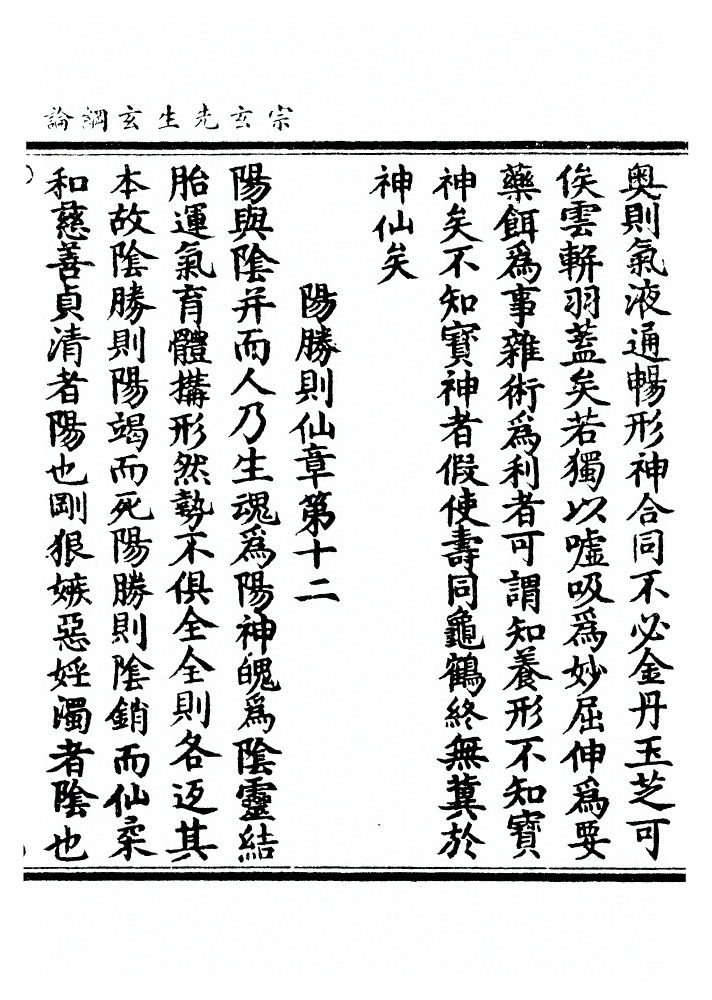 宗玄先生玄綱論
奥則氣液通暢形神合同不必金丹玉芝可
俟雲軿羽蓋矣若獨以噓吸爲妙屈伸爲要
藥餌爲事雜術爲利者可謂知養形不知寶
神矣不知寶神者假使壽同龜鶴終無冀於
神仙矣
陽勝則仙章第十二
陽與陰并而人乃生魂爲陽神魄爲陰靈結
胎運氣育體搆形然勢不俱全全則各返其
本故陰勝則陽竭而死陽勝則陰銷而仙柔
和慈善貞清者陽也剛狠嫉惡婬濁者陰也